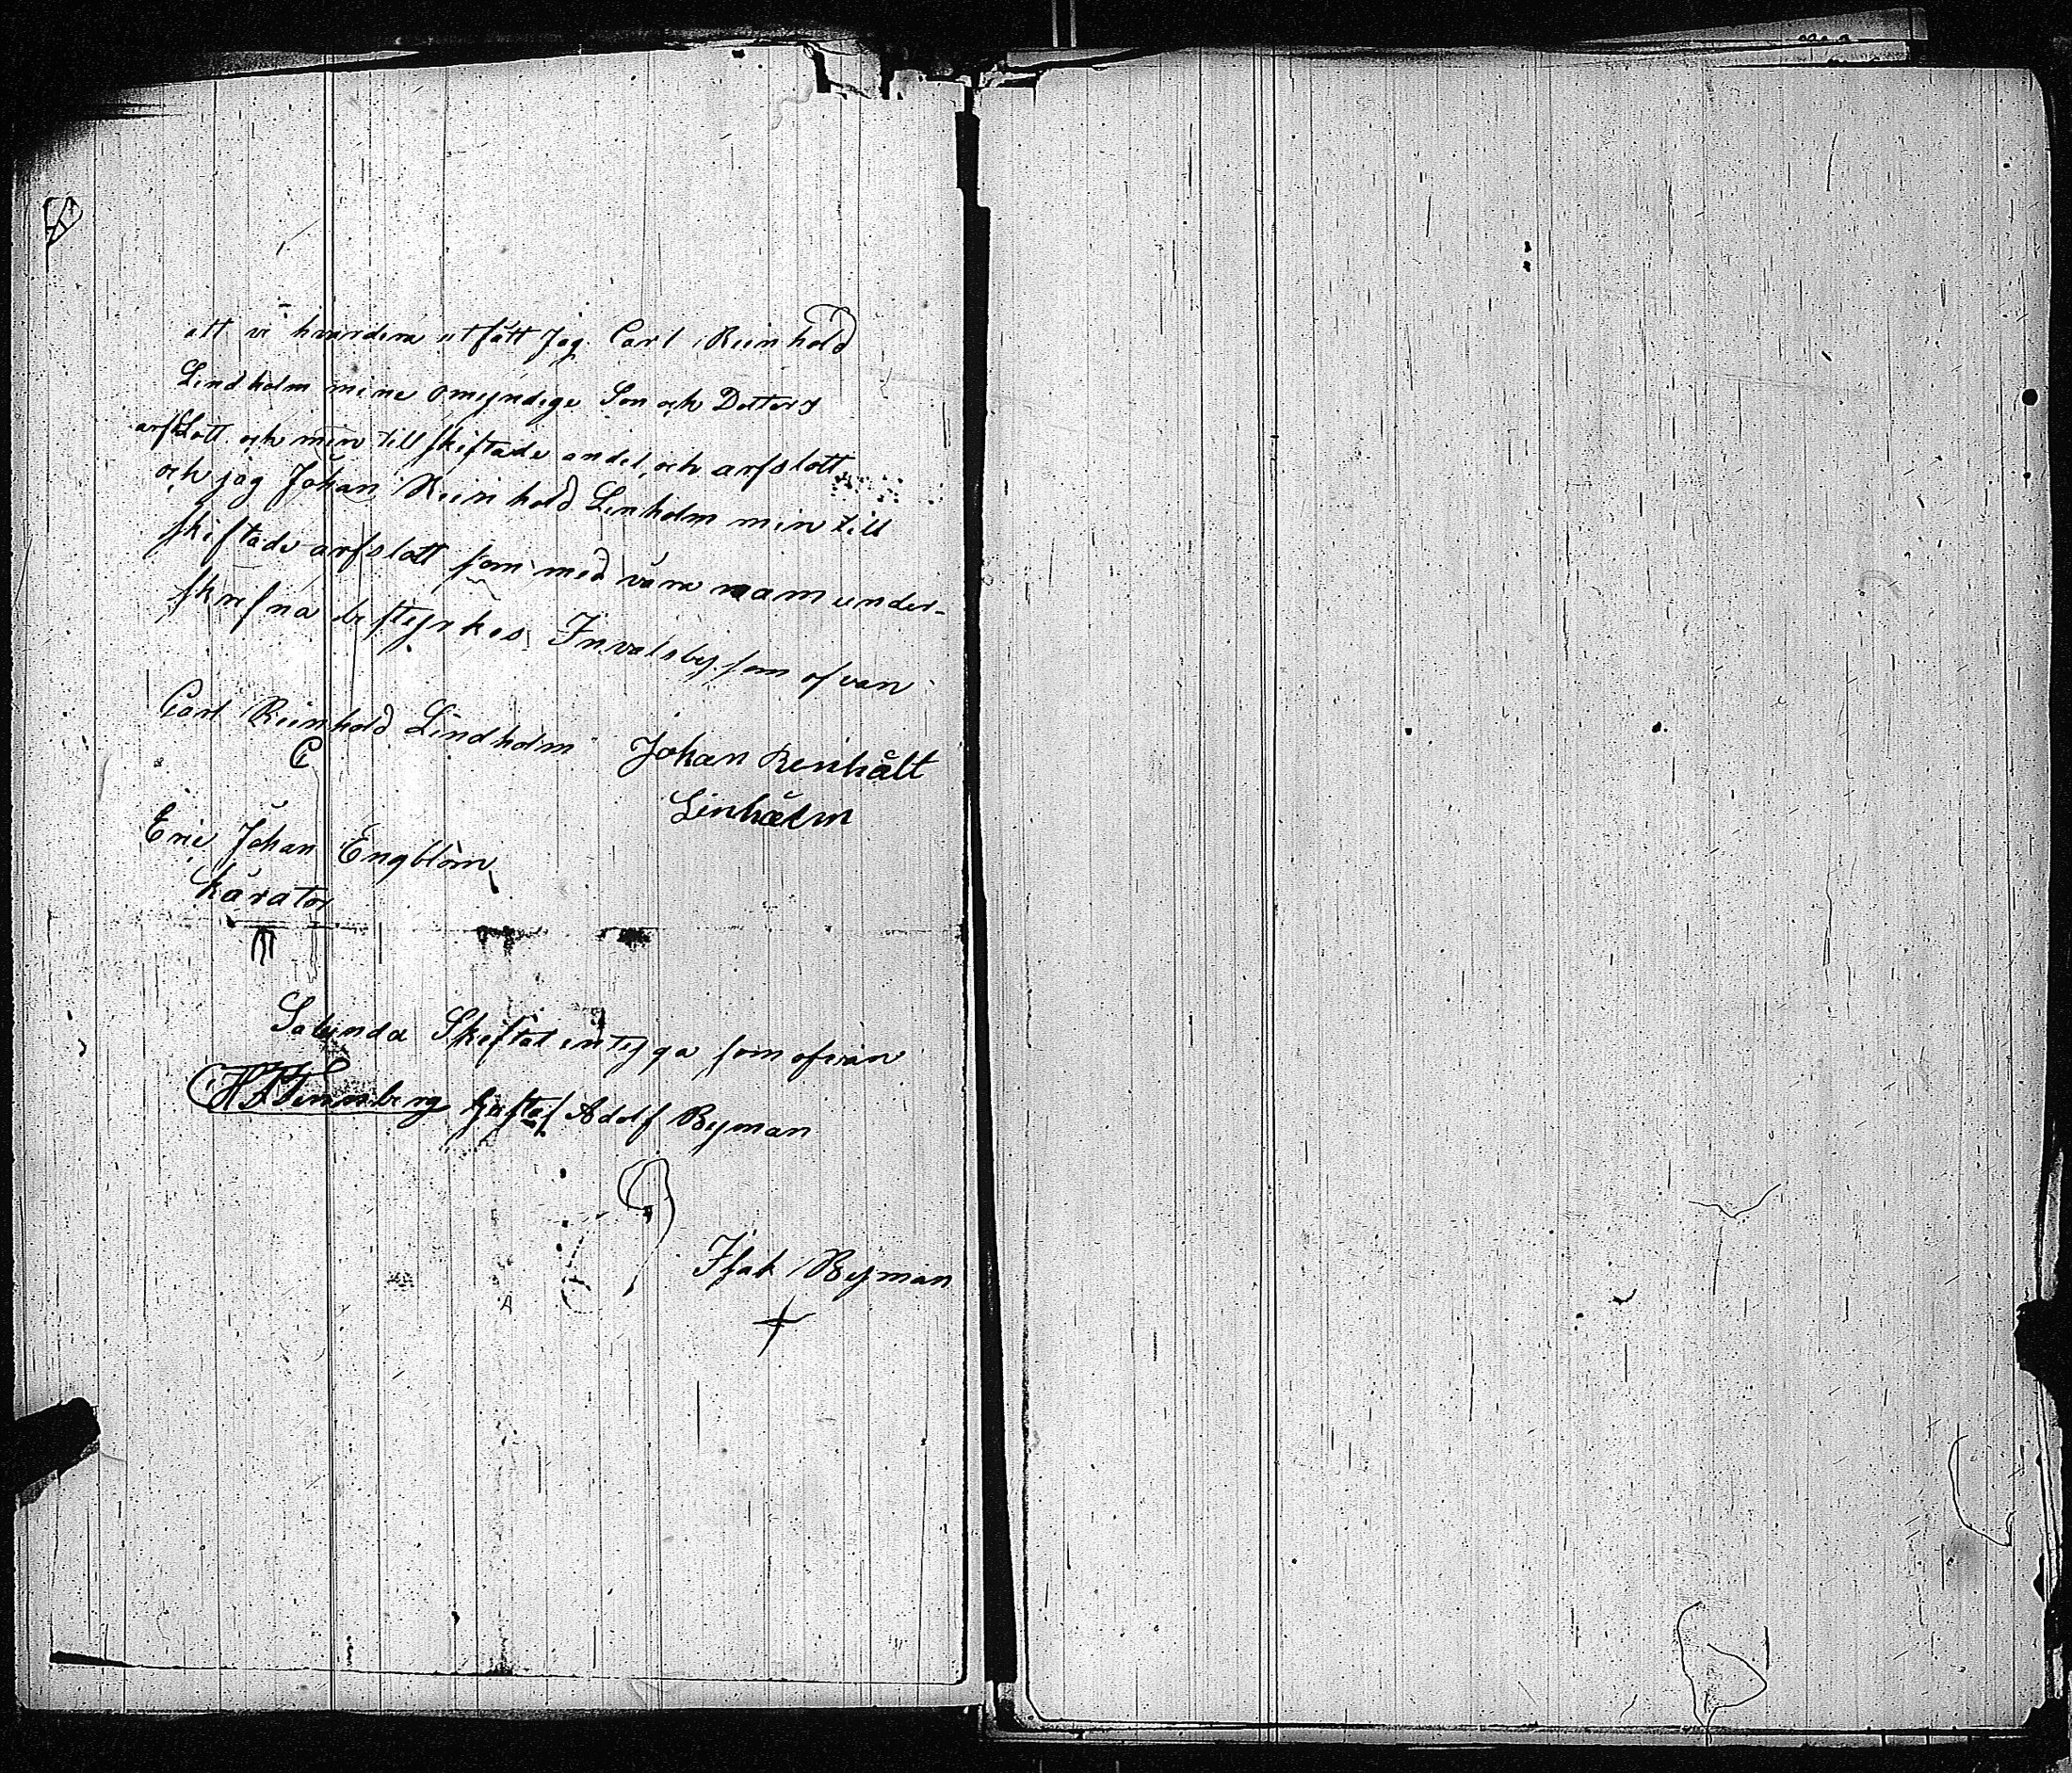 att vi hvardera utfått Jag Carl Reinhold
Lindholm mine omyndige Son och Dotters
arfslott och min till skiftade andel och arfslott
och jag Johan Reinhold Linholm min till
skiftade arfslott som med våra nam under-
skrifna bestyrkes Invalsby som ofvan
Carl Reinhold Lindholm Johan Renhålt
Linhålm
Eric Johan Engblom
kårator
Salunda Skeftat intyga som ofvan
Gustaf Adolf Byman
Isak Byman